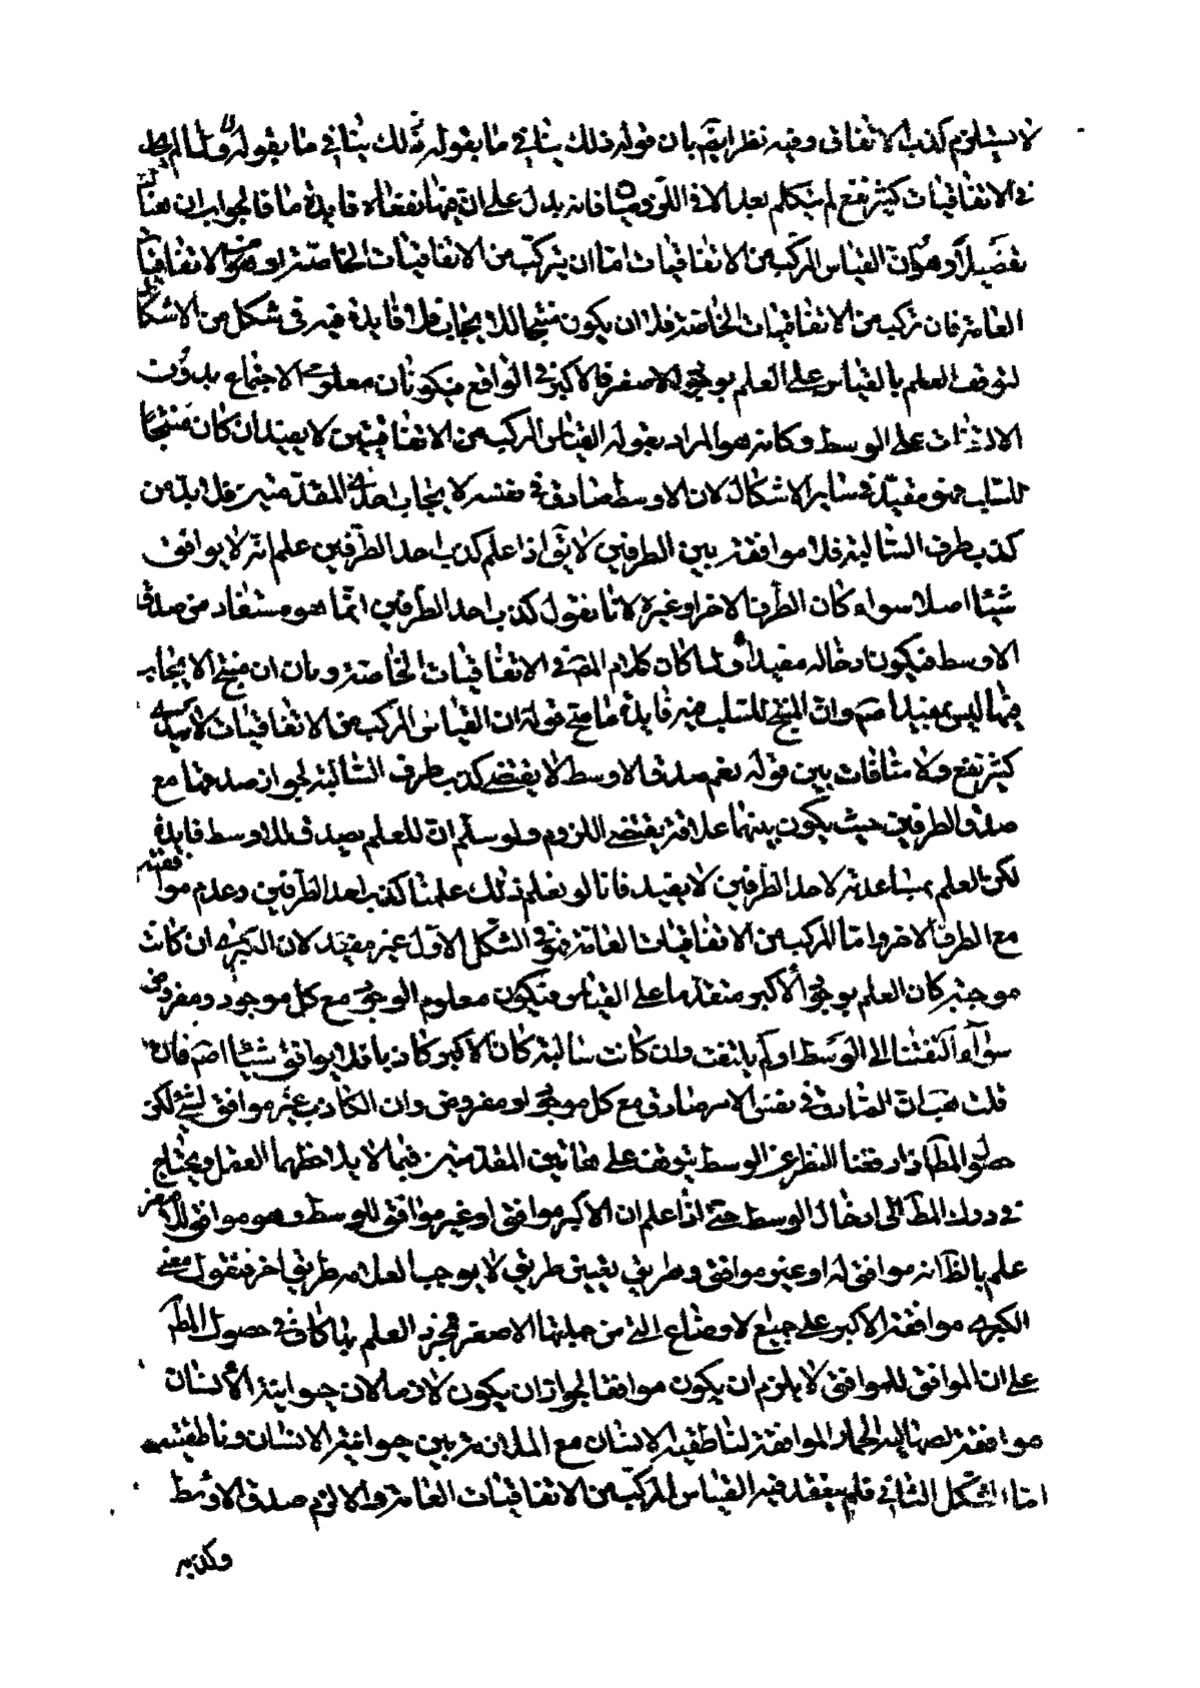 لا يستلزم كذب الاتفاقى وفيه نظر ايضا بان قوله ذلك ينافى ما يقوله ذلك ينافي ما يقوله ولما لم يكن
فى الاتفاقيات كثير نفع لم يتكلم بعد الا فى اللزوميات فانه يدل على ان فيها نفعا او فايدة ما فالجواب ان هنا
تفصيلا وهو ان القياس المركب من الاتفاقيات اما ان يتركب من الاتفاقيات الخاصة او من الاتفاقيات
العامة فان تركب من الاتفاقيات الخاصة فلا ان يكون منتجا للايجاب فلا فايدة فيه فى شكل من الاشكال
لتوقف العلم بالقياس على العلم بوجود الاصغر والاكبر فى الواقع فيكونان معلومى الاجتماع بدون
الالتفات على الوسط وكانه هو المراد بقوله القياس المركب من الاتفاقيتين لا يفيد ان كان منتجا
للسلب فهو مفيد فى ساير الاشكال لان الاوسط صادق فى نفسه لايجاب احدى المقدمتين فلا بد من
كذب طرف السالبة فلا موافقة بين الطرفين لا يق اذا علم كذب احد الطرفين علم انه لا يوافق
شيئا اصلا سواء كان الطرف الاخر او غيره لانا نقول كذب احد الطرفين انما هو مستفاد من صدق
الاوسط فيكون ادخاله مفيدا ولما كان كلام المص فى الاتفاقيات الخاصة وبان ان منتج الايجاب
فيها ليس بمفيد اصم وان المنتج للسلب فيه فايدة ما صح قوله ان القياس المركب من الاتفاقيات لا يفيد
كثير نفع ولا منافات بين قوله نعم صدق الاوسط لا يقتضى كذب طرف السالبة لجواز صدقهما مع
صدق الطرفين حيث يكون بينهما علاقة يقتضى اللزوم ولو سلم ان للعلم بصدق للاوسط فايدة
لكن العلم بمساعدته لاحد الطرفين لا يفيد فانا لو نعلم ذلك علمنا كذب احد الطرفين وعدم موافقته
مع الطرف الاخر واما المركب من الاتفاقيات العامة فهو فى الشكل الاول غير مفيد لان الكبرى ان كانت
موجبة كان العلم بوجود الاكبر متقدما على القياس فيكون معلوم الوجود مع كل موجود ومفروض
سواء التفتنا الى الوسط او لم يلتفت وان كانت سالبة كان الاكبر كاذبا فلا يوافق شيئا اصم فان
قلت هب ان الصادق فى نفس الامر صادق مع كل موجود او مفروض وان الكاذب غير موافق لشئ لكن
حصول المط اذا رفعنا النظر عن الوسط يتوقف على هاتين المقدمتين فيما لا يلاحظهما العقل ويحتاج
فى درك المط الى ادخال الوسط حتى اذا علم ان الاكبر موافق او غير موافق للوسط وهو موافق للاصغر
علم بالظ انه موافق له او غير موافق وطريق تعيين طريق لا يوجب العدام طريق اخر فنقول معنى
الكبرى موافقة الاكبر على جميع الاوضاع التى من جملتها الاصغر فمجرد العلم بها كاف فى حصول المط
على ان الموافق للموافق لا يلزم ان يكون موافقا لجواز ان يكون لازما لان حيوانية الانسان
موافقة لصهالية الحمار الموافقة لناطقية الانسان مع الملازمة بين حيوانية الانسان وناطقيته
اما الشكل الثانى فلم ينعقد فيه القياس المركب من الاتفاقيات العامة والا لزم صدق الاوسط
وكذبه